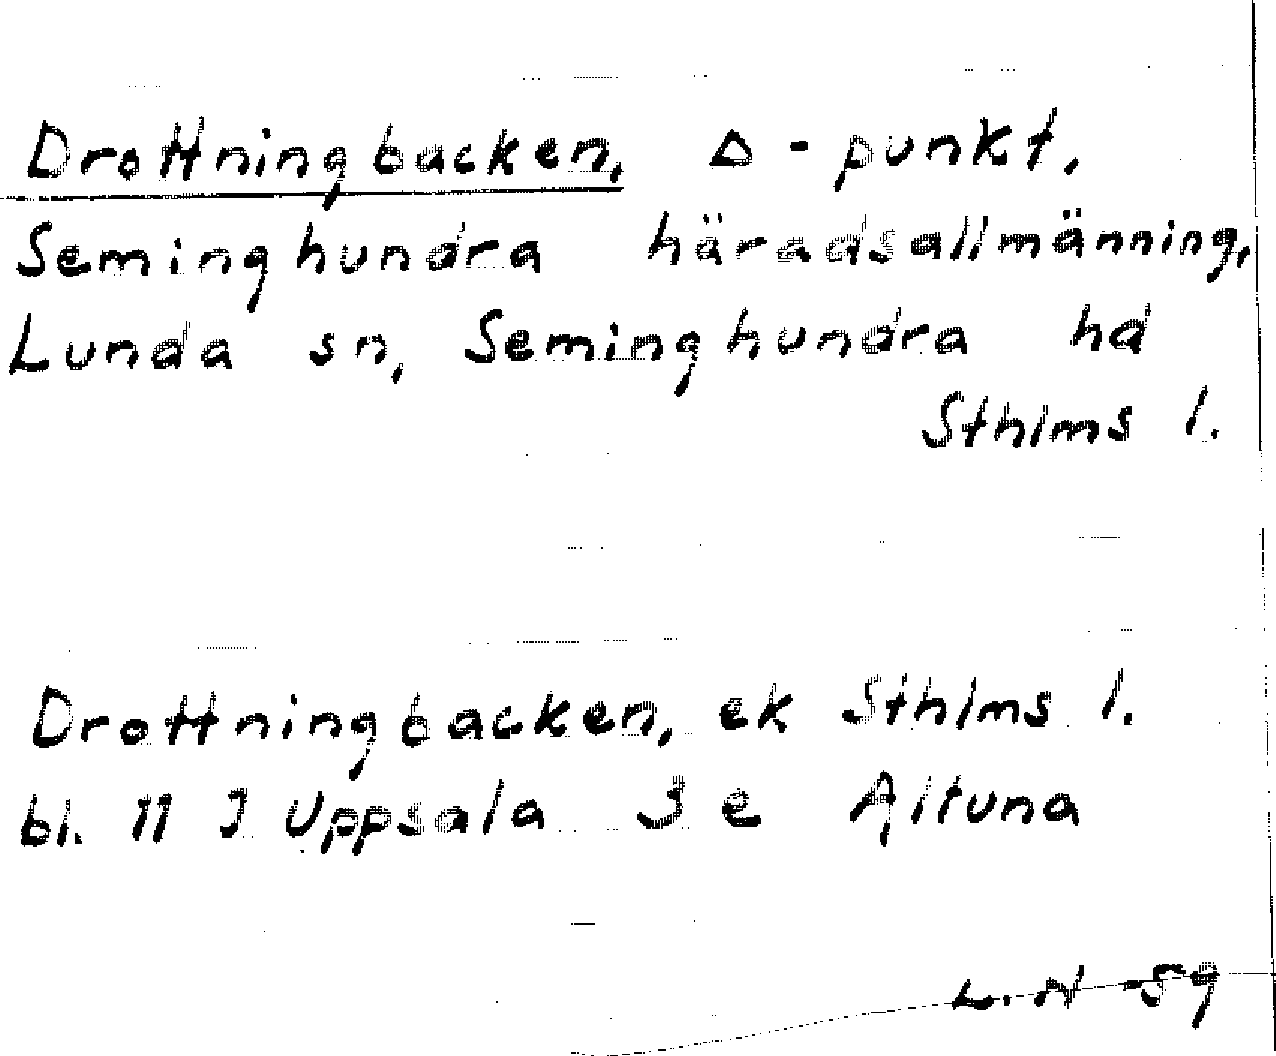 Drottningbacken, Δ - punkt,
Seminghundra häradsallmänning,
Lunda sn, Seminghundra hd
Sthlms l.
Drottningbacken, ek Sthlms l.
bl. 11 I Uppsala 3 e Altuna
L. N -59